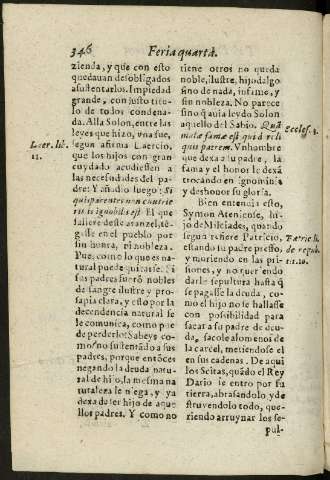 346
Feria quarta.
zienda, y que con esto
quedauan desobligados
a sustentarlos. Impiedad
grande, con iusto titu-
lo de todos condena-
da. Alla Solon, entre las
leyes que hizo, vna fue,
segun afirma Laercio,
que los hijos con gran
cuydado acudiessen a
las necessidades del pa-
dre. Y añadio luego: Si
quis parentes non nutrie-
rit is ignobilis est. El que
faliere deste aranzel, tē-
gasse en el pueblo por
sin honra, ni nobleza.
Pues como lo que es na-
tural puede quitarse? Si
sus padres fuerō nobles
de sangre ilustre y pro-
sapia clara, y esto por la
decendencia natural se
le comunica, como pue-
de perderlo? Sabeys co-
mo? no sustentādo a sus
padres, porque entōces
negando la deuda natu-
ral de hijo, la mesma na-
turaleza le niega, y ya
dexa de ser hijo de aque
llos padres. Y como no
Laer. lib.
11.
tiene otros no queda
noble, ilustre, hijodalgo
sino de nada, infame, y
sin nobleza. No parece
sino q̄ auia leydo Solon
aquello del Sabio. Quā
mala famæ est qui dereli
quis patrem. Vn hombre
que dexa a su padre, la
fama y el honor le dexā
trocando en ignominia
y deshonor su gloria.
Bien entendio esto,
Symon Ateniense, hi-
jo de Milciades, quando
segun refiere Patricio,
estando su padre preso,
y muriendo en las pri-
siones, y no queriendo
darle sepultura hasta q̄
se pagasse la deuda, co-
mo el hijo no se hallasse
con possibilidad para
sacar a su padre de deu-
da, sacole alomenos de
la carcel, metiendose el
en sus cadenas. De aqui
los Scitas, quādo el Rey
Dario le entro por su
tierra, abrasandolo y de
struyendolo todo, que-
riendo arruynar los se-
pul-
Eccles. 3.
Patric. li.
de repub.
tit. 10.